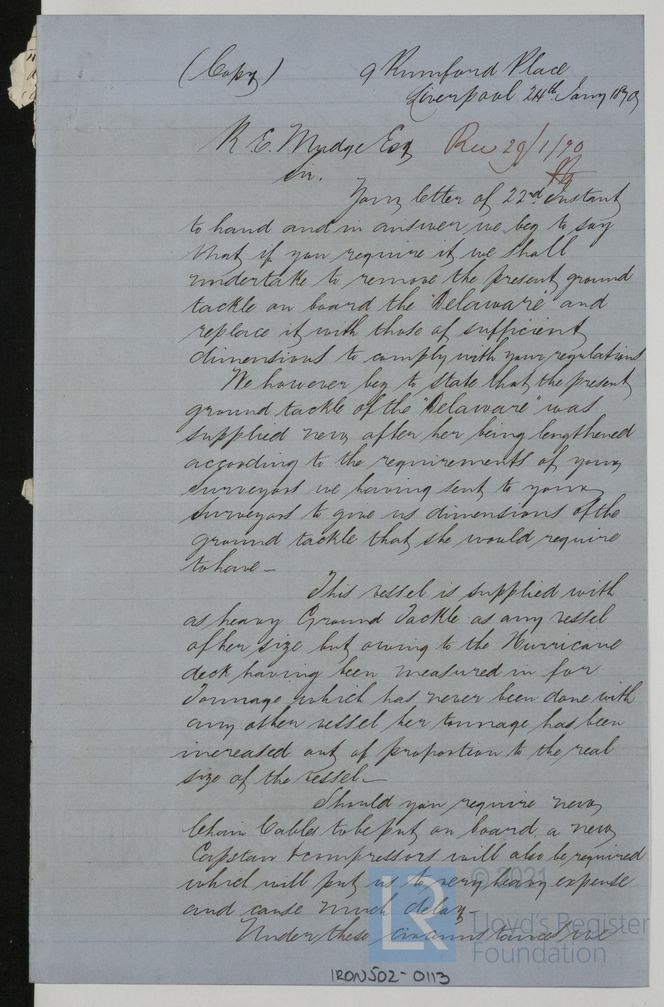 (Copy) 9 Rumford Place
Liverpool 24th Jany 1870
R. E. Mudge Esq Rec 29/1/70
Sir.
Your letter of 22nd instant
to hand and in answer we beg to say
that if you require it we shall
undertake to remove the present ground
tackle on board the "Delaware" and
replace it with those of sufficient
dimensions to comply with your regulations
We however beg to state that the present
ground tackle of the "Delaware" was
supplied new after her being lengthened
according to the requirements of your
surveyors we having sent to your
surveyors to give us dimensions of the
ground tackle that she would require
to have –
This vessel is supplied with
as heavy Ground Tackle as any vessel
of her size but owing to the Hurricane
deck having been measured in for
Tonnage which has never been done with
any other vessel her tonnage has been
increased out of proportion to the real
size of the vessel –
Should you require new
Chain Cables to be put on board, a new
Capstan & compressors will also be required
which will put us to very heavy expense
and cause much delay –
Under these circumstances we
© 2021
LR Lloyd's Register
Foundation
IRON502-0113